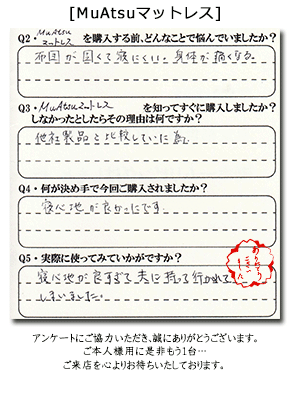 [MuAtsuマットレス]
Q2・MuAtsuマットレスを購入する前、どんなことで悩んでいましたか?
布団が固くて寝にくい。身体が痛くなる。
Q3・MuAtsuマットレスを知ってすぐに購入しましたか?
しなかったとしたらその理由は何ですか?
他社製品と比較していた為。
Q4・何が決め手で今回ご購入されましたか?
寝心地が良かったです。
Q5・実際に使ってみていかがですか?
寝心地が良すぎて夫に持って行かれて
しまいました。
ありがとう
ございました
アンケートにご協力いただき、誠にありがとうございます。
ご本人様用に是非もう1台…
ご来店を心よりお待ちいたしております。